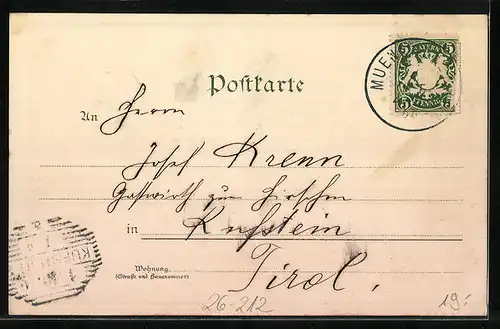 Postkarte
BAYERN
5 5
5 PFENNIG 5
MUEN
An Herrn
Josef Krenn
Gastwirth zum Hirschen
in Kufstein
Wohnung
(Straße und Hausnummer)
Tirol.
26-212
19.-